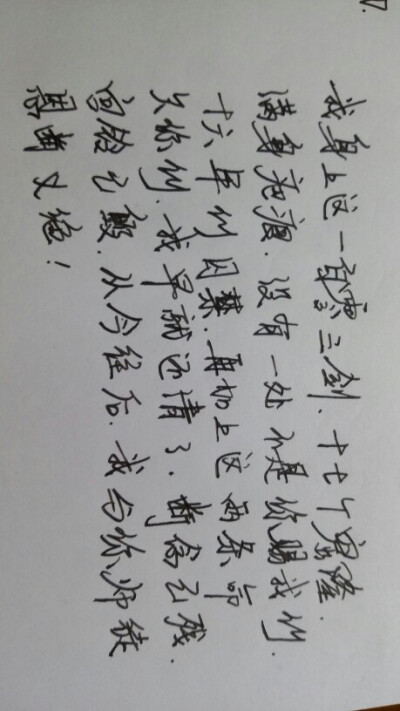 我身上这一百零三剑.十七个窟窿.
满身疤痕.没有一处不是你赐我的.
十六年的囚禁.再加上这两条命
欠你的.我早就还清了.断念已残.
宫铃已毁.从今往后.我与你师徒
恩断义绝!